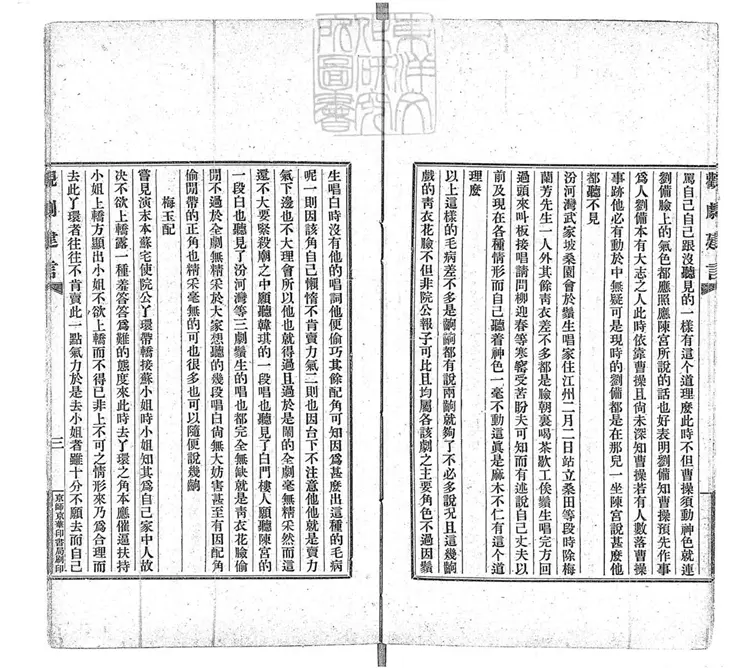 觀劇建言
罵自己自己跟沒聽見的一樣有這個道理麼此時不但曹操須動神色就連
劉備臉上的氣色都應照應陳宮所說的話也好表明劉備知曹操預先作事
爲人劉備本有大志之人此時依靠曹操且尙未深知曹操若有人數落曹操
事跡他必有動於中無疑可是現時的劉備都是在那兒一坐陳宮說甚麼他
都聽不見
汾河灣武家坡桑園會於鬚生唱家住江州二月二日站立桑田等段時除梅
蘭芳先生一人外其餘靑衣差不多都是臉朝裏喝茶歇工俟鬚生唱完方回
過頭來叫板接唱請問柳迎春等寒窰受苦盼夫可知而有述說自己丈夫以
前及現在各種情形而自己聽着神色一毫不動這眞是麻木不仁有這個道
理麼
以上這樣的毛病差不多是齣齣都有說兩齣就夠了不必多說況且這幾齣
戲的靑衣花臉不但非院公報子可比且均屬各該劇之主要角色不過因鬚
生唱白時沒有他的唱詞他便偷巧其餘配角可知因爲甚麼出這種的毛病
呢一則因該角自己懶惰不肯賣力氣二則也因台下不注意他他就是賣力
氣下邊也不大理會所以他也就得過且過於是鬧的全劇毫無精采然而這
還不大要緊殺廟之中願聽韓琪的一段唱也聽見了白門樓人願聽陳宮的
一段白也聽見了汾河灣等三劇鬚生的唱也都完全無缺就是靑衣花臉偷
閒不過於全劇無精采於大家想聽的幾段唱白尙無大妨害甚至有因配角
偷閒帶的正角也精采毫無的可也很多也可以隨便說幾齣
梅玉配
嘗見演末本蘇宅使院公丫環帶轎接蘇小姐時小姐知其爲自己家中人故
决不欲上轎露一種羞答答爲難的態度來此時去丫環之角本應催逼扶持
小姐上轎方顯出小姐不欲上轎而不得已非上不可之情形來乃爲合理而
去此丫環者往往不肯賣此一點氣力於是去小姐者雖十分不願去而自己
觀劇建言
三
京師京華印書局刷印